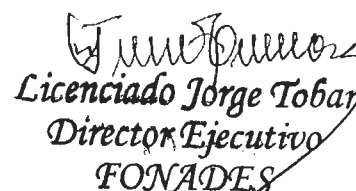 Licenciado Jorge Tobar
Director Ejecutivo
FONADES